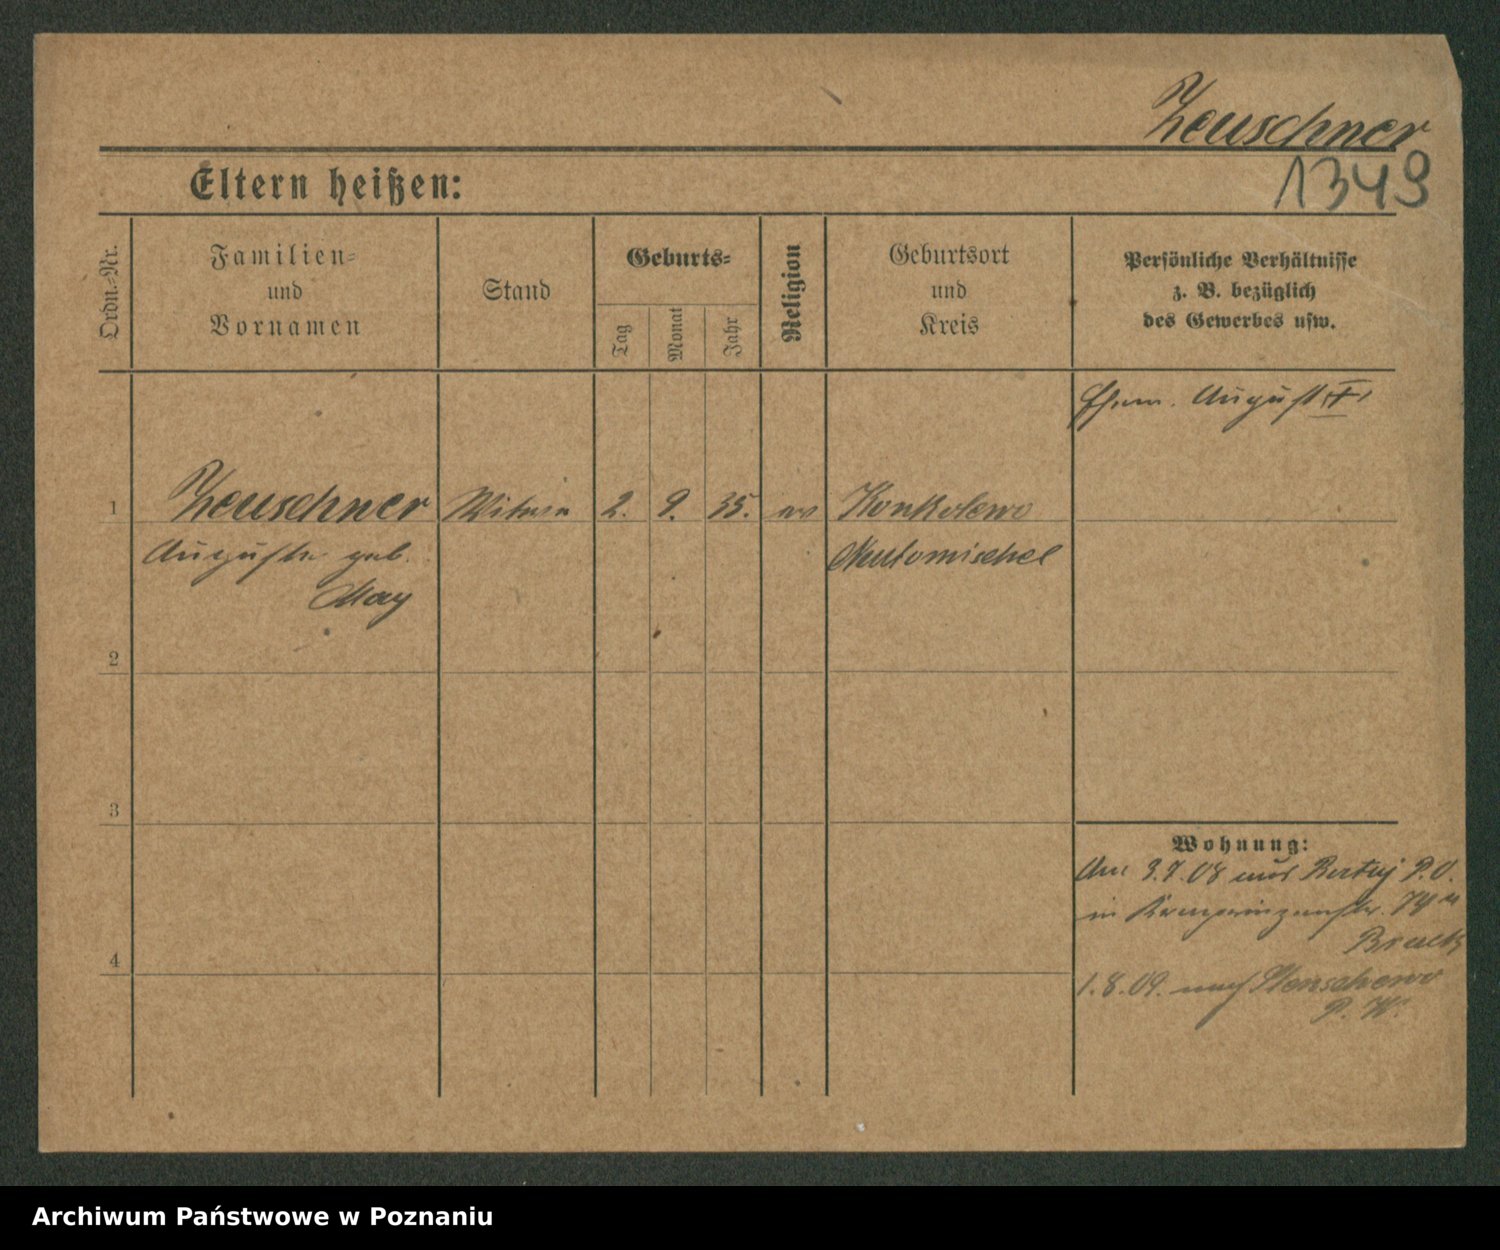 Zeuschner
1349
Eltern heißen:
Ordn.-Nr.
Familien-
und
Vornamen
Stand
Geburts-
Tag
Monat
Jahr
Religion
Geburtsort
und
Kreis
Persönliche Verhältnisse
z. B. bezüglich
des Gewerbes usw.
Ehem. August
1
Zeuschner
Witwe
2. 9. 35.
ev
Konkolewo
Auguste geb.
May
Neutomischel
2
3
4
Wohnung:
Am 3.7.08 aus P.O.
in Kronprinzenstr.
1.8.09. nach
P. W.
Archiwum Państwowe w Poznaniu